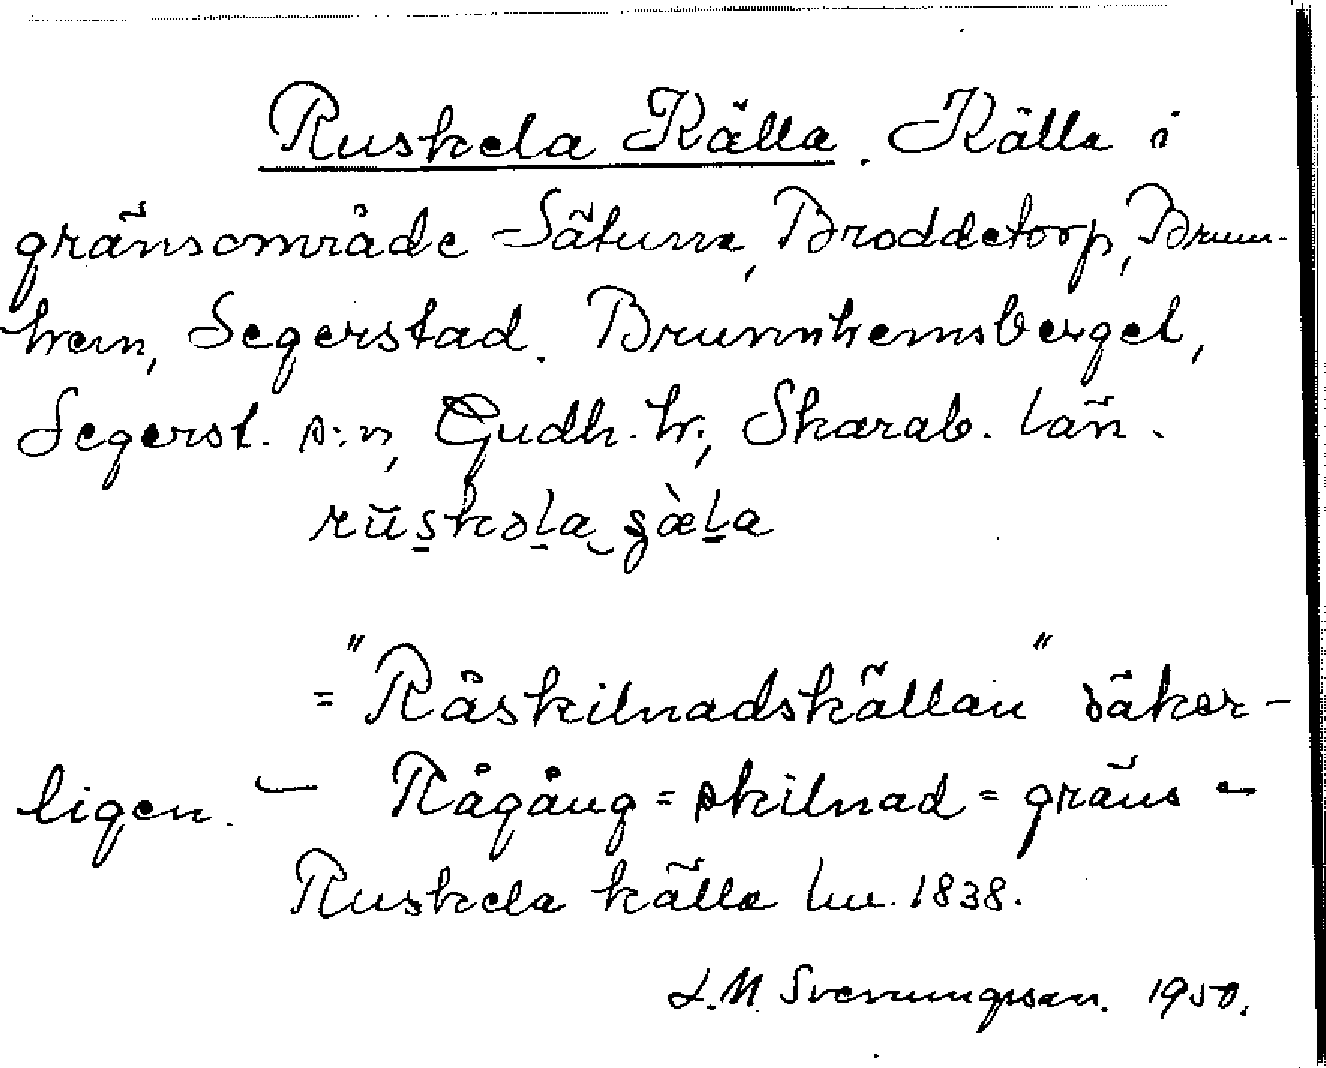 Ruskela Källa. Källa i
gränsområde Sätuna, Broddetorp, Brunn-
hem, Segerstad. Brunnhemsberget,
Segerst. s:n, Gudh. hr., Skarab. län.
rūskəla gàla
= "Råskilnadskällan" säker-
ligen. — Rågång = skilnad = gräns —
Ruskela källa Lm. 1838.
L.M. Svenungsson. 1950.